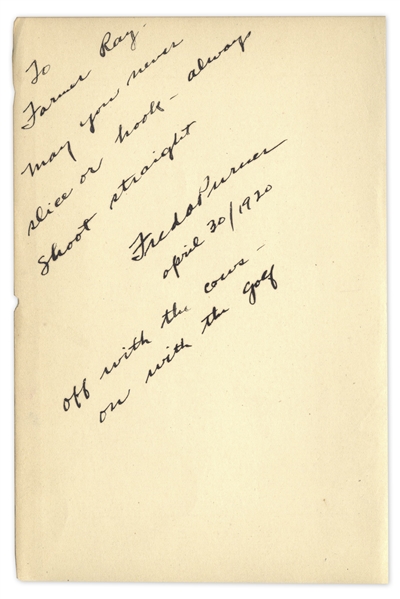 To
Farmer Ray-
May you never
slice or hook - always
Shoot straight
Freda Purner
april 30/1920
off with the cows -
on with the golf